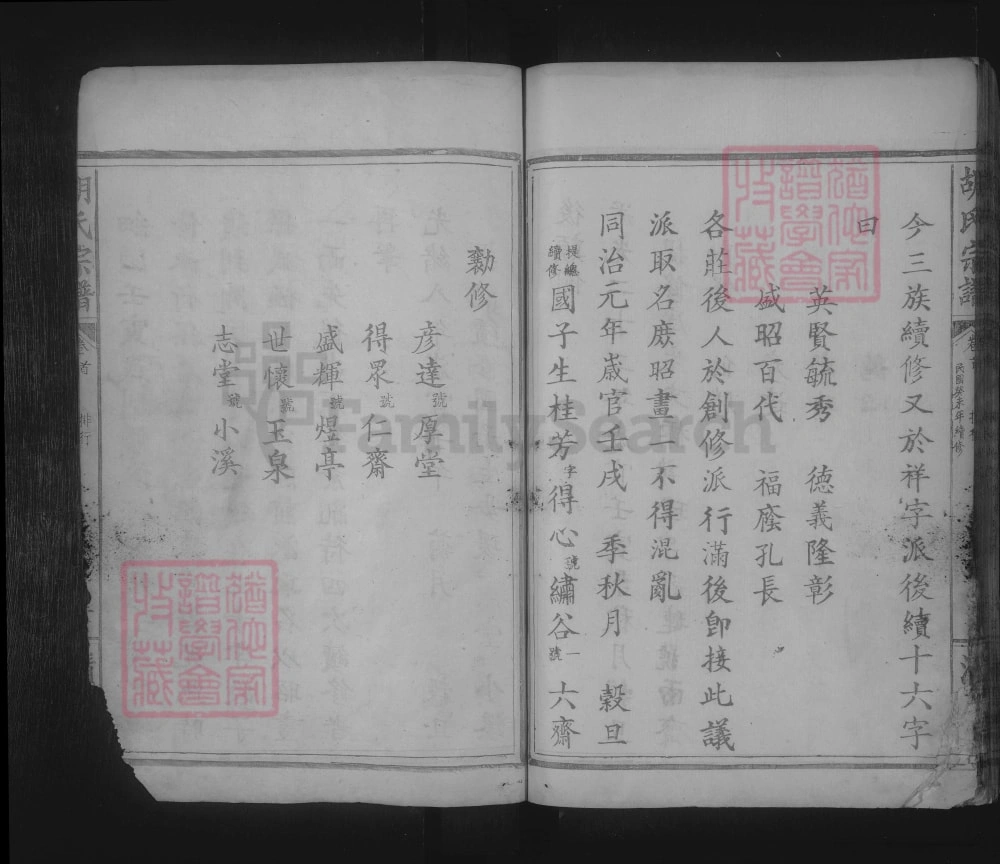 胡氏宗譜
民國癸未年續修
今三族續修又於祥字派後續十六字
曰
英賢毓秀 德義隆彰
盛昭百代 福廕孔長
各莊後人於創修派行滿後卽接此議
派取名庶昭畫一不得混亂
同治元年歲官壬戌 季秋月 穀旦
總提續修國子生桂芳字得心號繡谷一號六齋
勷修
彥達號厚堂
得眾號仁齋
盛輝號煜亭
世懷號玉泉
志堂號小溪
胡氏宗譜
卷首
排行
FamilySearch